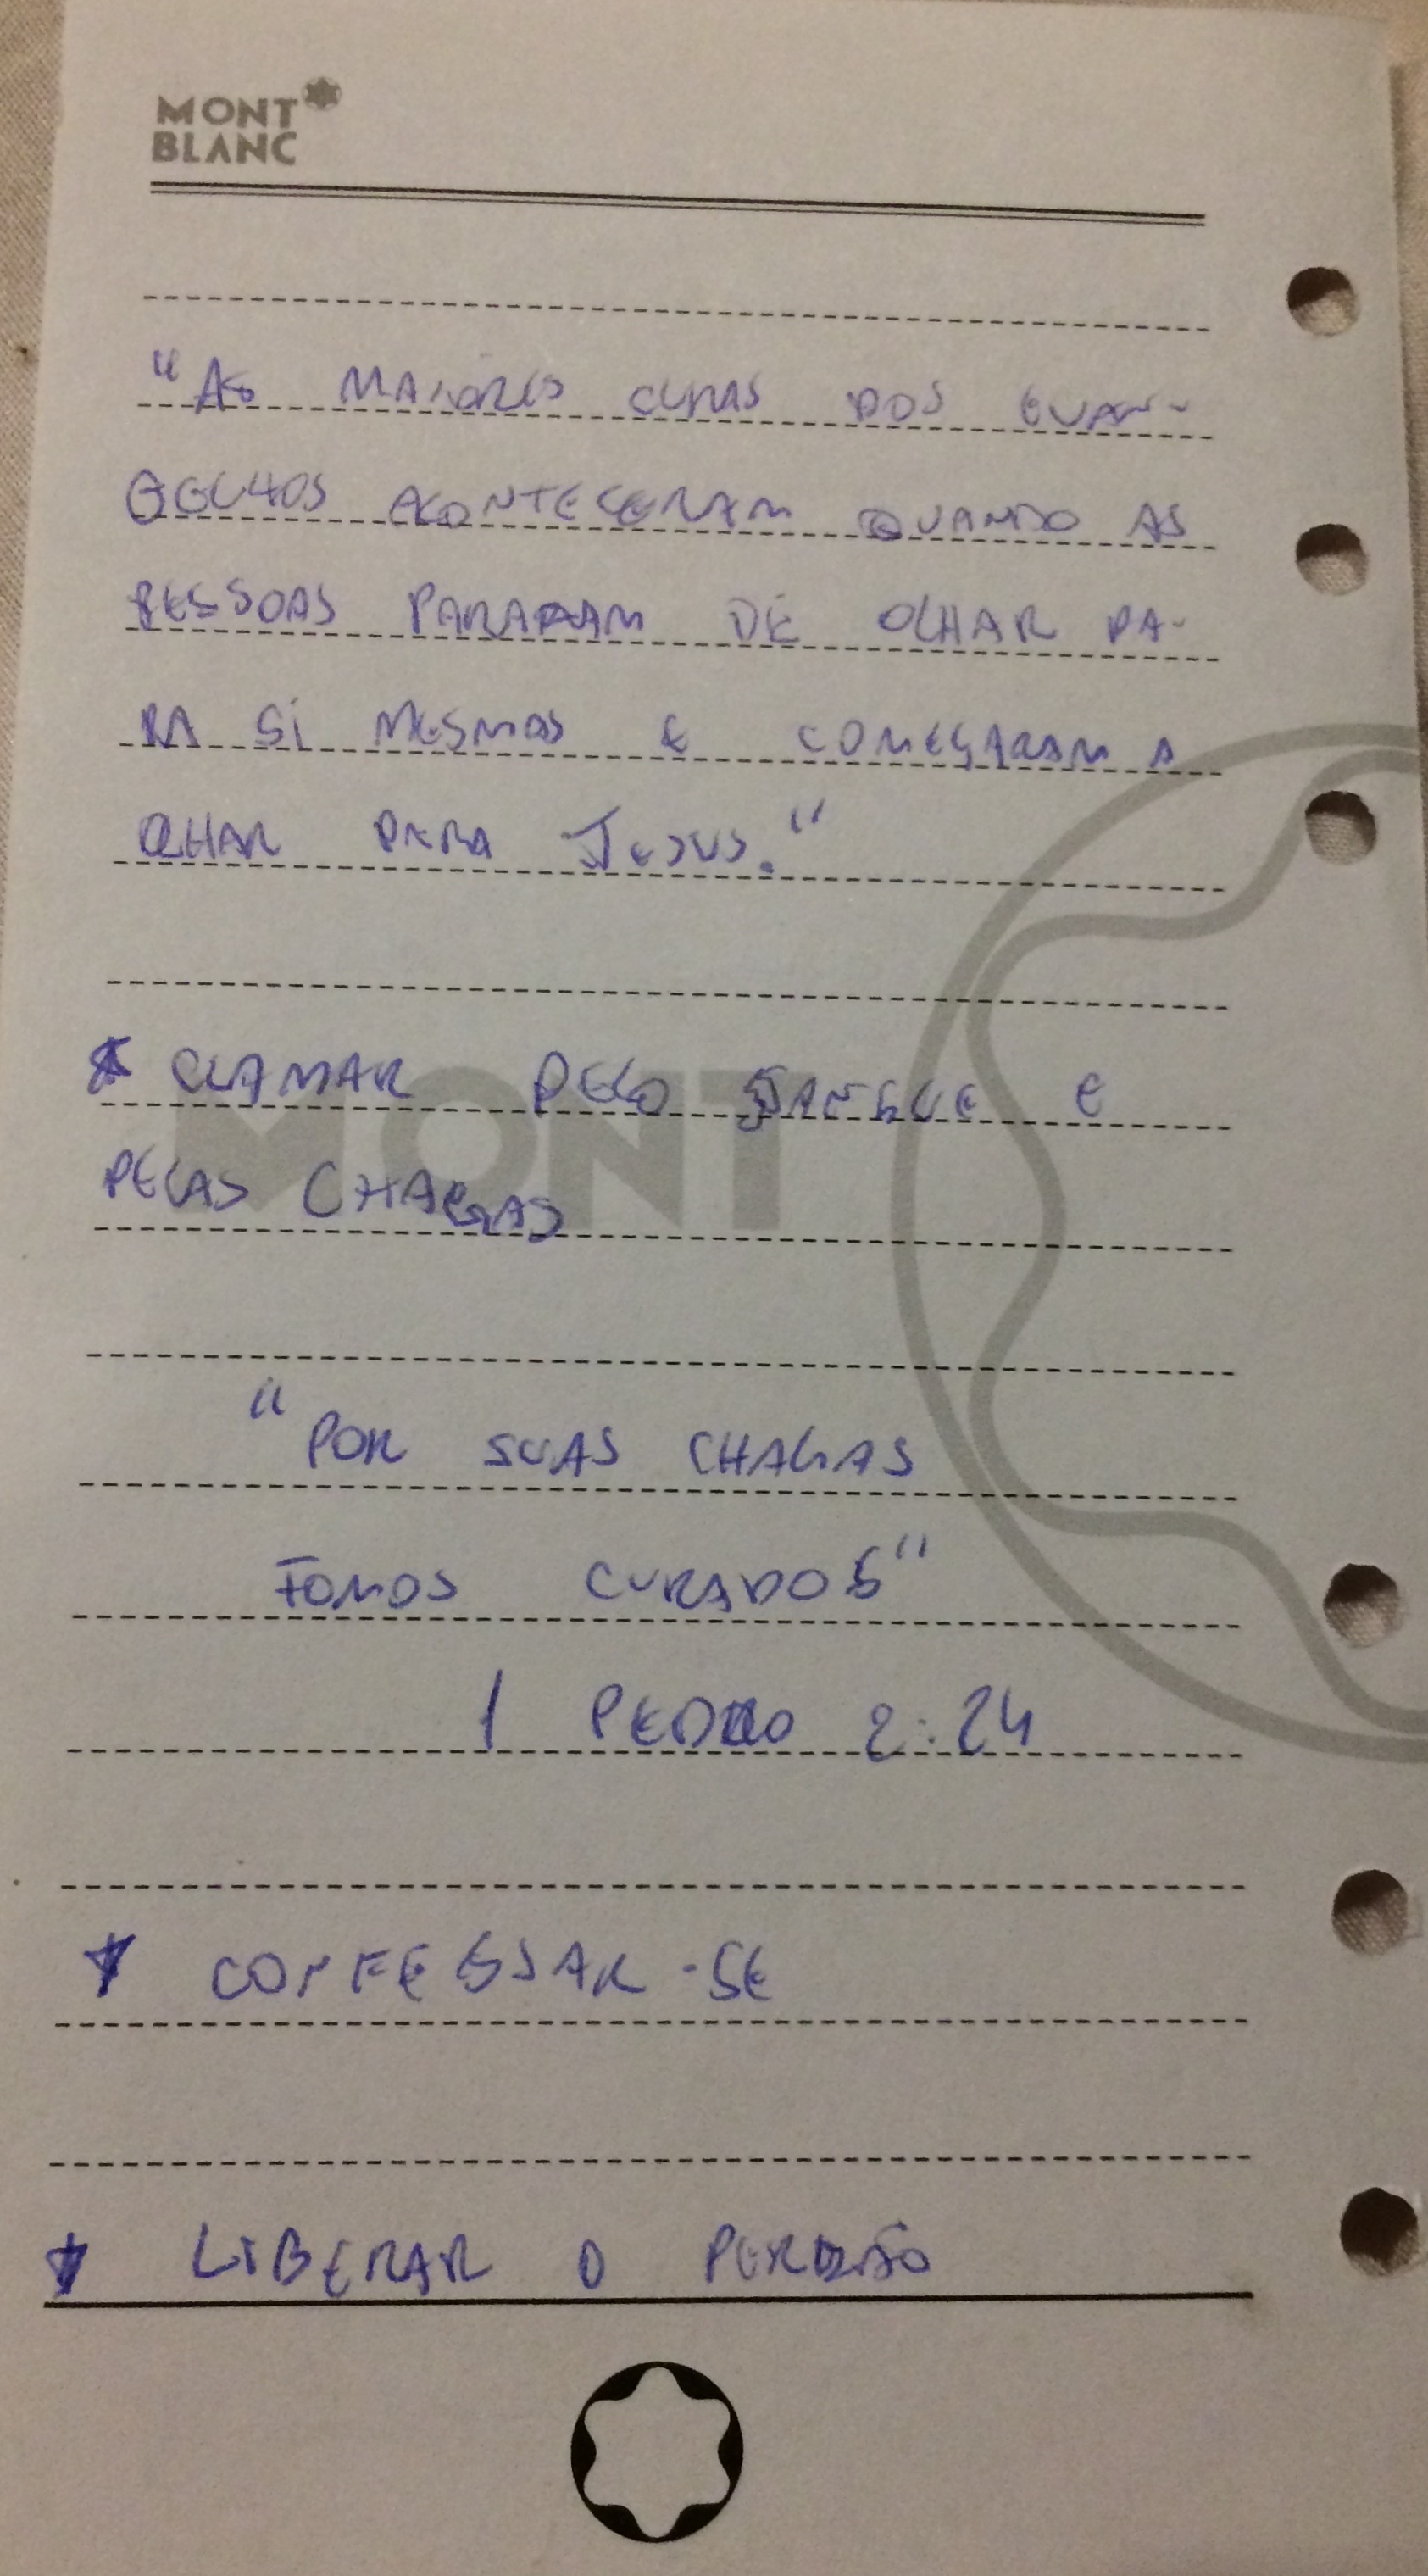 MONT
BLANC
"AS MAIORES CURAS DOS EVAN-
GELHOS ACONTECERAM QUANDO AS
PESSOAS PARARAM DE OLHAR PA-
RA SI MESMAS E COMEÇARAM A
OLHAR PARA JESUS."
* CLAMAR PELO SANGUE E
PELAS CHAGAS
MONT
"POR SUAS CHAGAS
FOMOS CURADOS"
1 PEDRO 2:24
* CONFESSAR-SE
* LIBERAR O PERDÃO